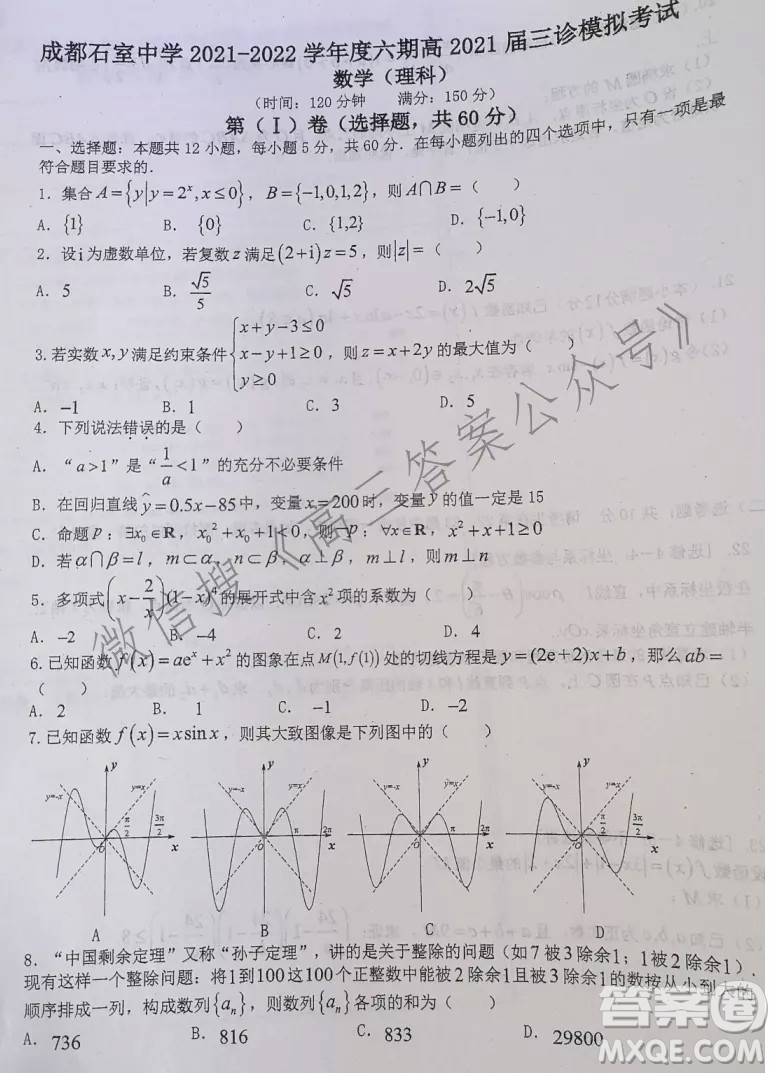 成都石室中学2021-2022学年度六期高2021届三诊模拟考试
数学（理科）
（时间：120分钟 满分：150分）
第（Ⅰ）卷（选择题，共60分）
一、选择题：本题共12小题，每小题5分，共60分．在每小题列出的四个选项中，只有一项是最
符合题目要求的．
1．集合A={y|y=2^x,x≤0}，B={-1,0,1,2}，则A∩B=（ ）
A．{1} B．{0} C．{1,2} D．{-1,0}
2．设i为虚数单位，若复数z满足(2+i)z=5，则|z|=（ ）
A．5 B．√5/5 C．√5 D．2√5
3.若实数x,y满足约束条件{x+y-3≤0 x-y+1≥0 y≥0，则z=x+2y的最大值为（ ）
A．-1 B．1 C．3 D．5
4．下列说法错误的是（ ）
A．“a>1”是“1/a<1”的充分不必要条件
B．在回归直线ŷ=0.5x-85中，变量x=200时，变量y的值一定是15
C．命题p：∃x₀∈R，x₀²+x₀+1<0，则¬p：∀x∈R，x²+x+1≥0
D．若α∩β=l，m⊂α，n⊂β，α⊥β，m⊥l，则m⊥n
5．多项式(x-2/x)(1-x)⁴的展开式中含x²项的系数为（ ）
A．-2 B．-4 C．2 D．4
6.已知函数f(x)=ae^x+x²的图象在点M(1,f(1))处的切线方程是y=(2e+2)x+b，那么ab=
（ ）
A．2 B．1 C．-1 D．-2
7.已知函数f(x)=xsinx，则其大致图像是下列图中的（ ）
y y=-x y=x π/2 3π/2 O x
y y=-x y=x π 2π O x
y y=-x y=x π 2π O x
y y=-x y=x π/2 3π/2 O x
A B C D
8．“中国剩余定理”又称“孙子定理”，讲的是关于整除的问题（如7被3除余1；1被2除余1）．
现有这样一个整除问题：将1到100这100个正整数中能被2除余1且被3除余1的数按从小到大的
顺序排成一列，构成数列{aₙ}，则数列{aₙ}各项的和为（ ）
A．736 B．816 C．833 D．29800
微信搜《高三答案公众号》
答案圈
MXQE.COM